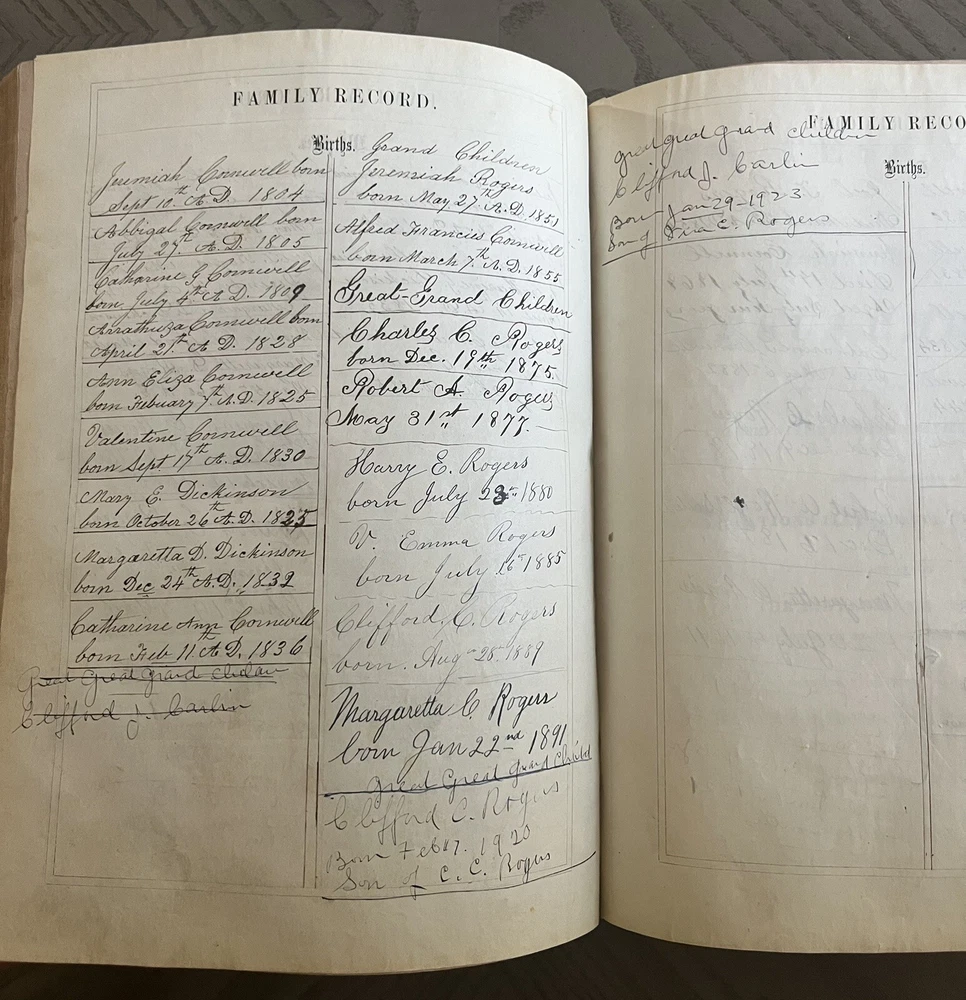 FAMILY RECORD.
Births.
Jeremiah Cornwell born
Sept 10th A.D. 1804
Abbigal Cornwell born
July 27th A.D. 1805
Catharine G Cornwell
born July 4th A D. 1809
Cornwell born
April 21st A D. 1828
Ann Eliza Cornwell
born Febuary A.D. 1825
Valentine Cornwell
born Sept 17th A.D. 1830
Mary E. Dickinson
born October 26th A.D. 1825
Margaretta D. Dickinson
born Dec 24th A.D. 1832
Catharine Ann Cornwell
born Feb 11th A.D. 1836
Great Great grand
Clifford J. Carlin
Grand Children
Jeremiah Rogers
born May 27th A.D. 1851
Alfred Francies Cornwell
born March 7th A.D. 1855
Great-Grand Children
Charles C. Rogers
born Dec. 19th 1875.
Robert A. Rogers
May 31st 1877.
Harry E. Rogers
born July 28th 1880
V. Emma Rogers
born July 16th 1885
Clifford C. Rogers
born. Aug 28th 1889
Margaretta C. Rogers
born Jan 22nd 1891
Great Great Grand Child
Clifford C. Rogers
Born Feb 17. 1920
Son of C. C. Rogers
FAMILY RECO
great great grand children
Births.
Clifford J. Carlin
Born Jan 29-1923
Son of C. Rogers